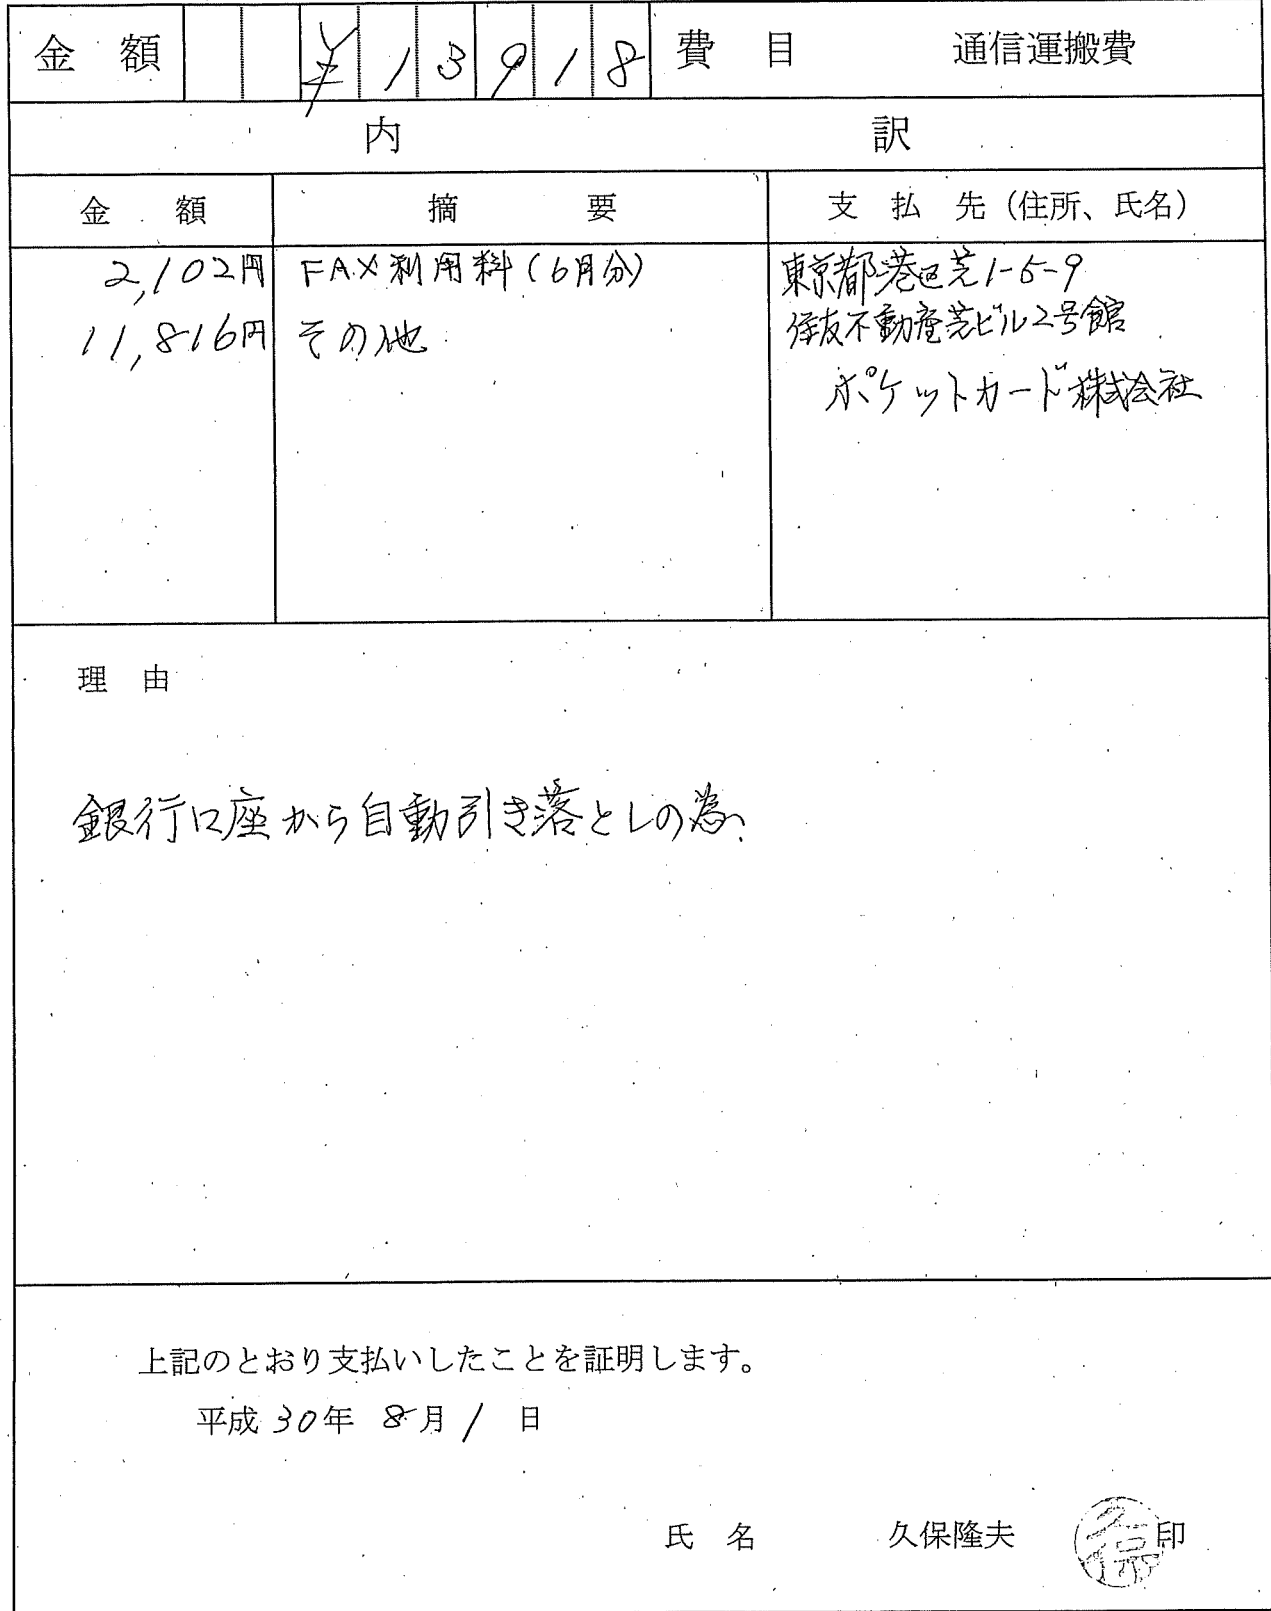 金額 ¥13918 費目 通信運搬費
内訳
金額 摘要 支払先（住所、氏名）
2,102円 FAX利用料（6月分） 東京都港区芝1-5-9
11,816円 その他 住友不動産芝ビル2号館
ポケットカード株式会社
理由
銀行口座から自動引き落としの為、
上記のとおり支払いしたことを証明します。
平成30年 8月 1 日
氏名 久保隆夫 久保 印